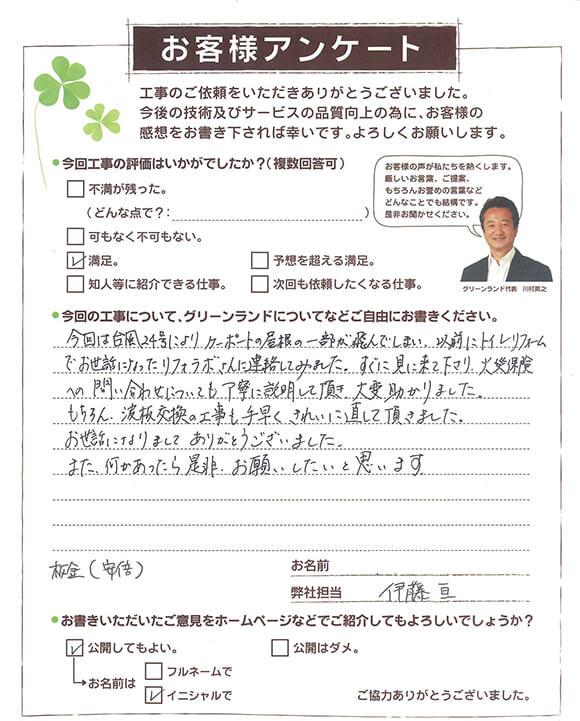 お客様アンケート
工事のご依頼をいただきありがとうございました。
今後の技術及びサービスの品質向上の為に、お客様の
感想をお書き下されば幸いです。よろしくお願いします。
今回工事の評価はいかがでしたか?(複数回答可)
不満が残った。
(どんな点で?: )
可もなく不可もない。
満足。
予想を超える満足。
知人等に紹介できる仕事。
次回も依頼したくなる仕事。
お客様の声が私たちを熱くします。
厳しいお言葉、ご提案、
もちろんお誉めの言葉など
どんなことでも結構です。
是非お聞かせください。
グリーンランド代表 川村英之
今回の工事について、グリーンランドについてなどご自由にお書きください。
今回は台風24号により、カーポートの屋根の一部が飛んでしまい、以前にトイレリフォーム
でお世話になったリフォラボさんに連絡してみました。すぐに見に来て下さり、火災保険
への問い合わせについても丁寧に説明して頂き、大変助かりました。
もちろん、波板交換の工事も手早くきれいに直して頂きました。
お世話になりまして ありがとうございました。
また、何かあったら是非、お願いしたいと思います
板金(安倍)
お名前
弊社担当 伊藤 亘
お書きいただいたご意見をホームページなどでご紹介してもよろしいでしょうか?
公開してもよい。
公開はダメ。
お名前は
フルネームで
イニシャルで
ご協力ありがとうございました。